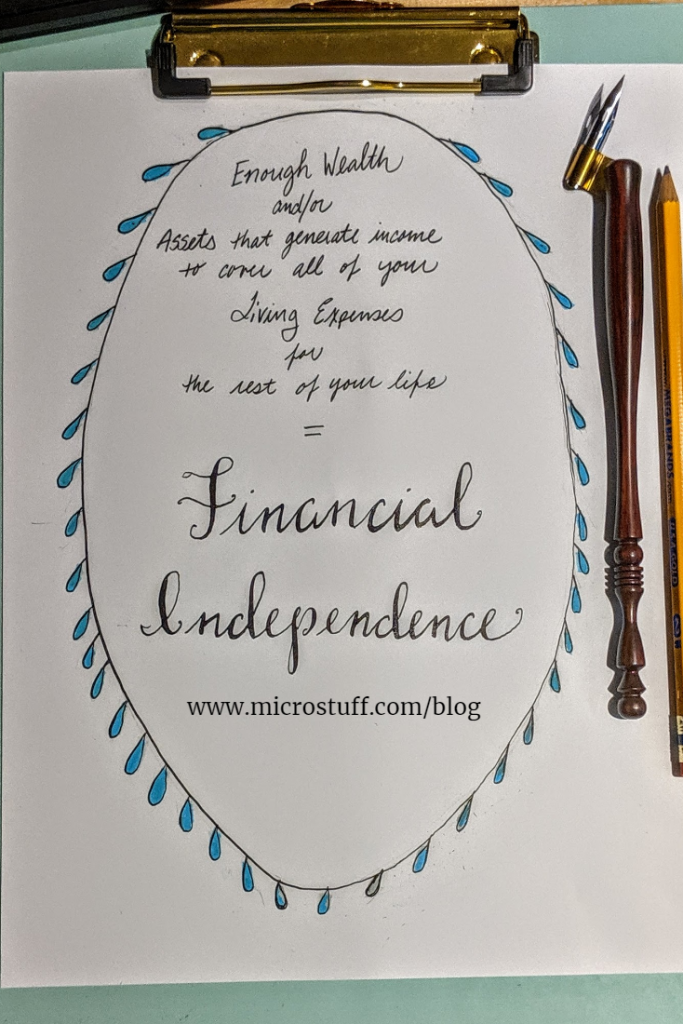 Enough Wealth
and/or
Assets that generate income
to cover all of your
Living Expenses
for
the rest of your life
=
Financial
Independence
www.microstuff.com/blog